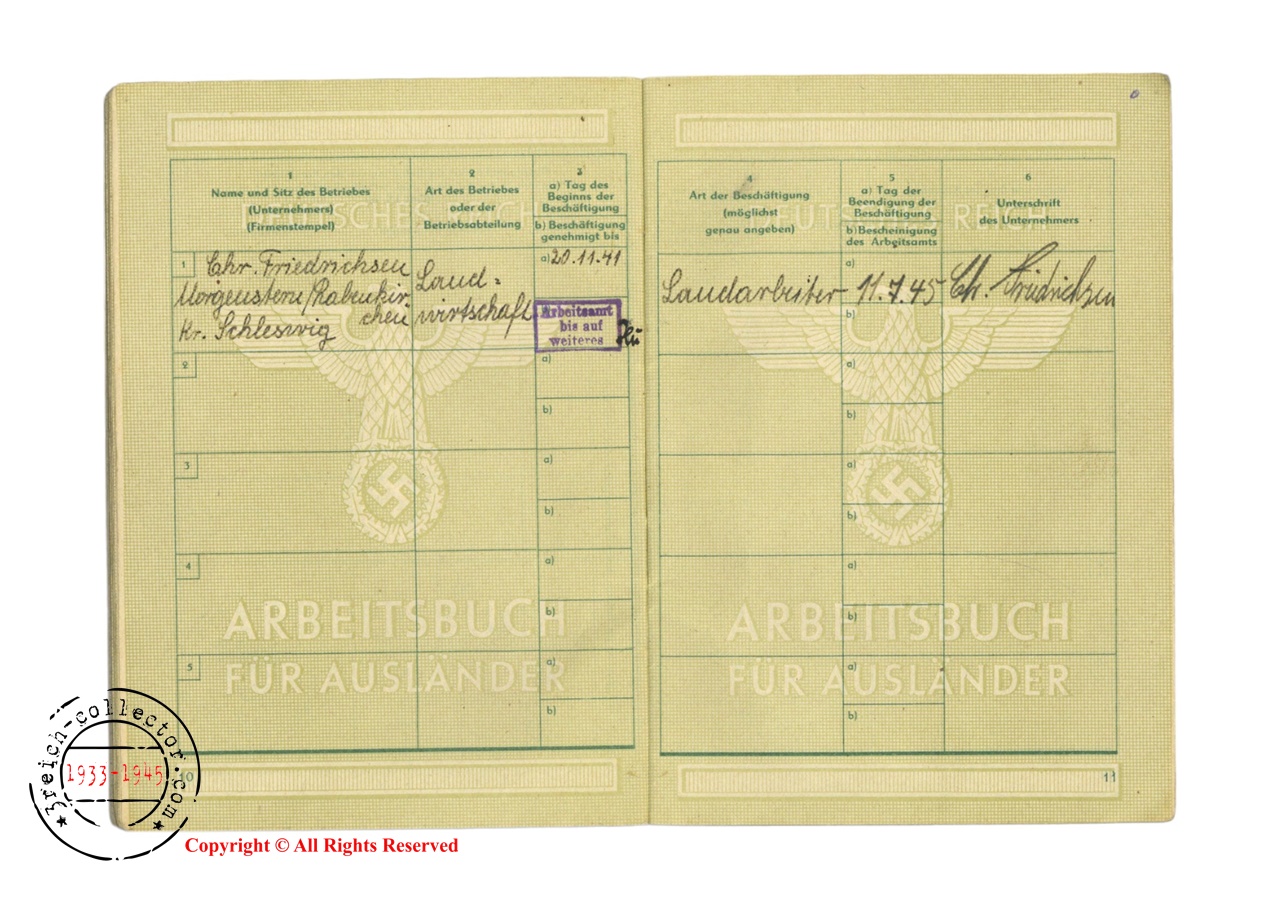 DEUTSCHES REICH
1
Name und Sitz des Betriebes
(Unternehmers)
(Firmenstempel)
2
Art des Betriebes
oder der
Betriebsabteilung
3
a) Tag des
Beginns der
Beschäftigung
b) Beschäftigung
genehmigt bis
1
Chr. Friedrichsen
Morgenstern/Rabenkir-
chen
Kr. Schleswig
Land=
wirtschaft
a) 20.11.41
Arbeitsamt
bis auf
weiteres
2
a)
b)
3
a)
b)
4
a)
b)
5
a)
b)
ARBEITSBUCH
FÜR AUSLÄNDER
10
DEUTSCHES REICH
4
Art der Beschäftigung
(möglichst
genau angeben)
5
a) Tag der
Beendigung der
Beschäftigung
b) Bescheinigung
des Arbeitsamts
6
Unterschrift
des Unternehmers
Landarbeiter
a)
11.7.45
b)
Ch. Friedrichsen
a)
b)
a)
b)
a)
b)
a)
b)
ARBEITSBUCH
FÜR AUSLÄNDER
11
3reich-collector.com
1933-1945
Copyright © All Rights Reserved